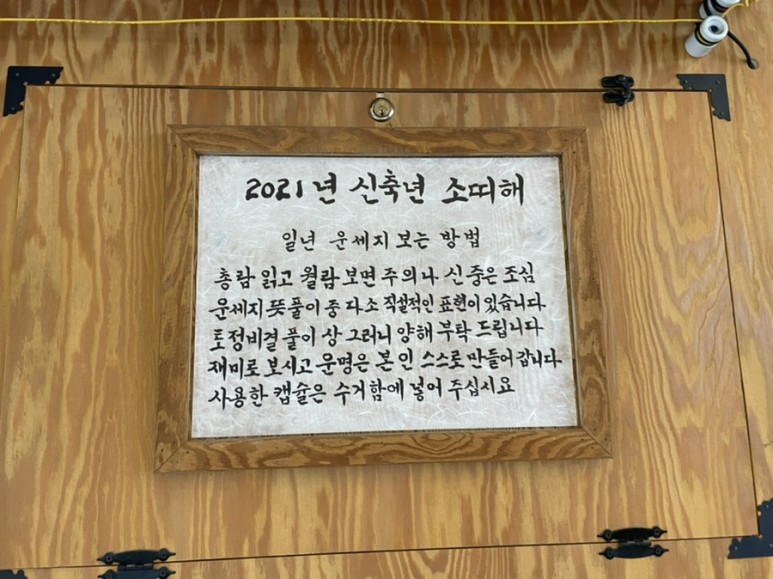 2021년 신축년 소띠해
일년 운세지 보는 방법
총람 읽고 월람 보면 주의나 신중은 조심
운세지 뜻풀이 중 다소 직설적인 표현이 있습니다
토정비결 풀이 상 그러니 양해 부탁 드립니다
재미로 보시고 운명은 본인 스스로 만들어 갑니다
사용한 캡슐은 수거함에 넣어 주십시요